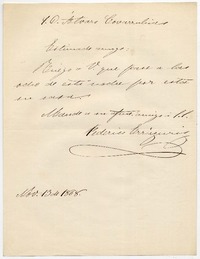 Estimado amigo:
Ruego a V. que pase a las
ocho de esta noche por esta
su casa.
Mande a su afmo. amigo i S.
Federico Errázuriz
Nov. 13 de 1868.